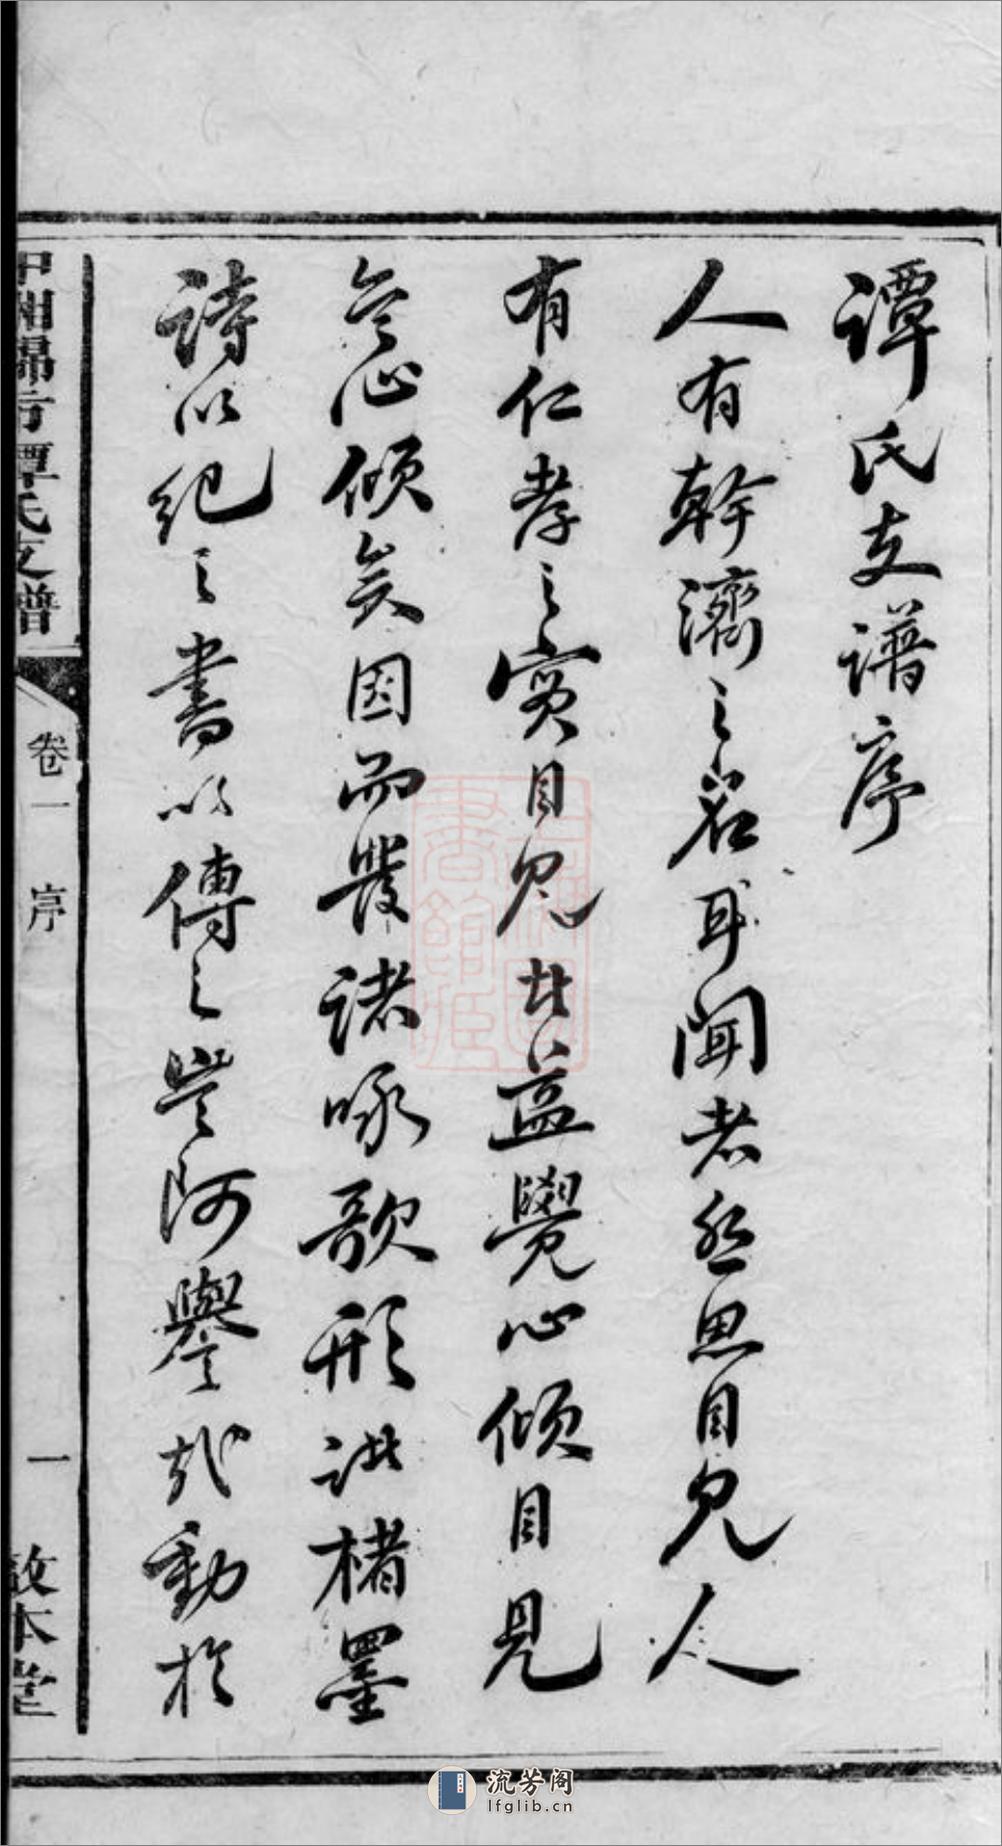 譚氏支譜序
人有幹濟之名耳聞者思目見人
有仁孝之實目見者益覺心傾目見
矣心傾矣因而發諸咏歌形諸楮墨
詩以紀之書以傳之豈阿譽哉動於
譚氏支譜
卷一
序
一
敦本堂
流芳阁
lfglib.cn